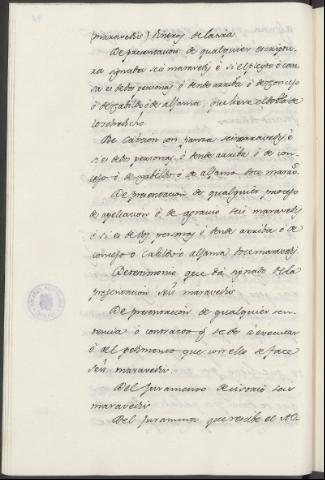 maravedis) derechos de la dha
De presentacion de qualquier escriptu-
ra signada seis maravedis, é si el pleyto ó cau-
sa es de dos personas, ó dende arriba ó de concejo
ó de cabildo ó de aljama, que lleve el doblo de
lo sobredicho
De Caucion con fianza seis maravedis é
si es de dos personas, ó dende arriba ó de con-
cejo ó de cabildo ó de aljama doce maravedis
De presentacion de qualquier proceso
de apelacion ó de agravio seis maravedis
é si es de dos personas ó dende arriba ó de
concejo ó Cabildo ó aljama doce maravedis
De testimonio que dá signado de la
presentacion seis maravedis
De presentacion de qualquier sen-
tencia ó contracto q se dé á executar
é del pedimento que con ello se face
seis maravedis.
Del Juramento decisorio seis
maravedis
Del Juramento que recibe el Al-